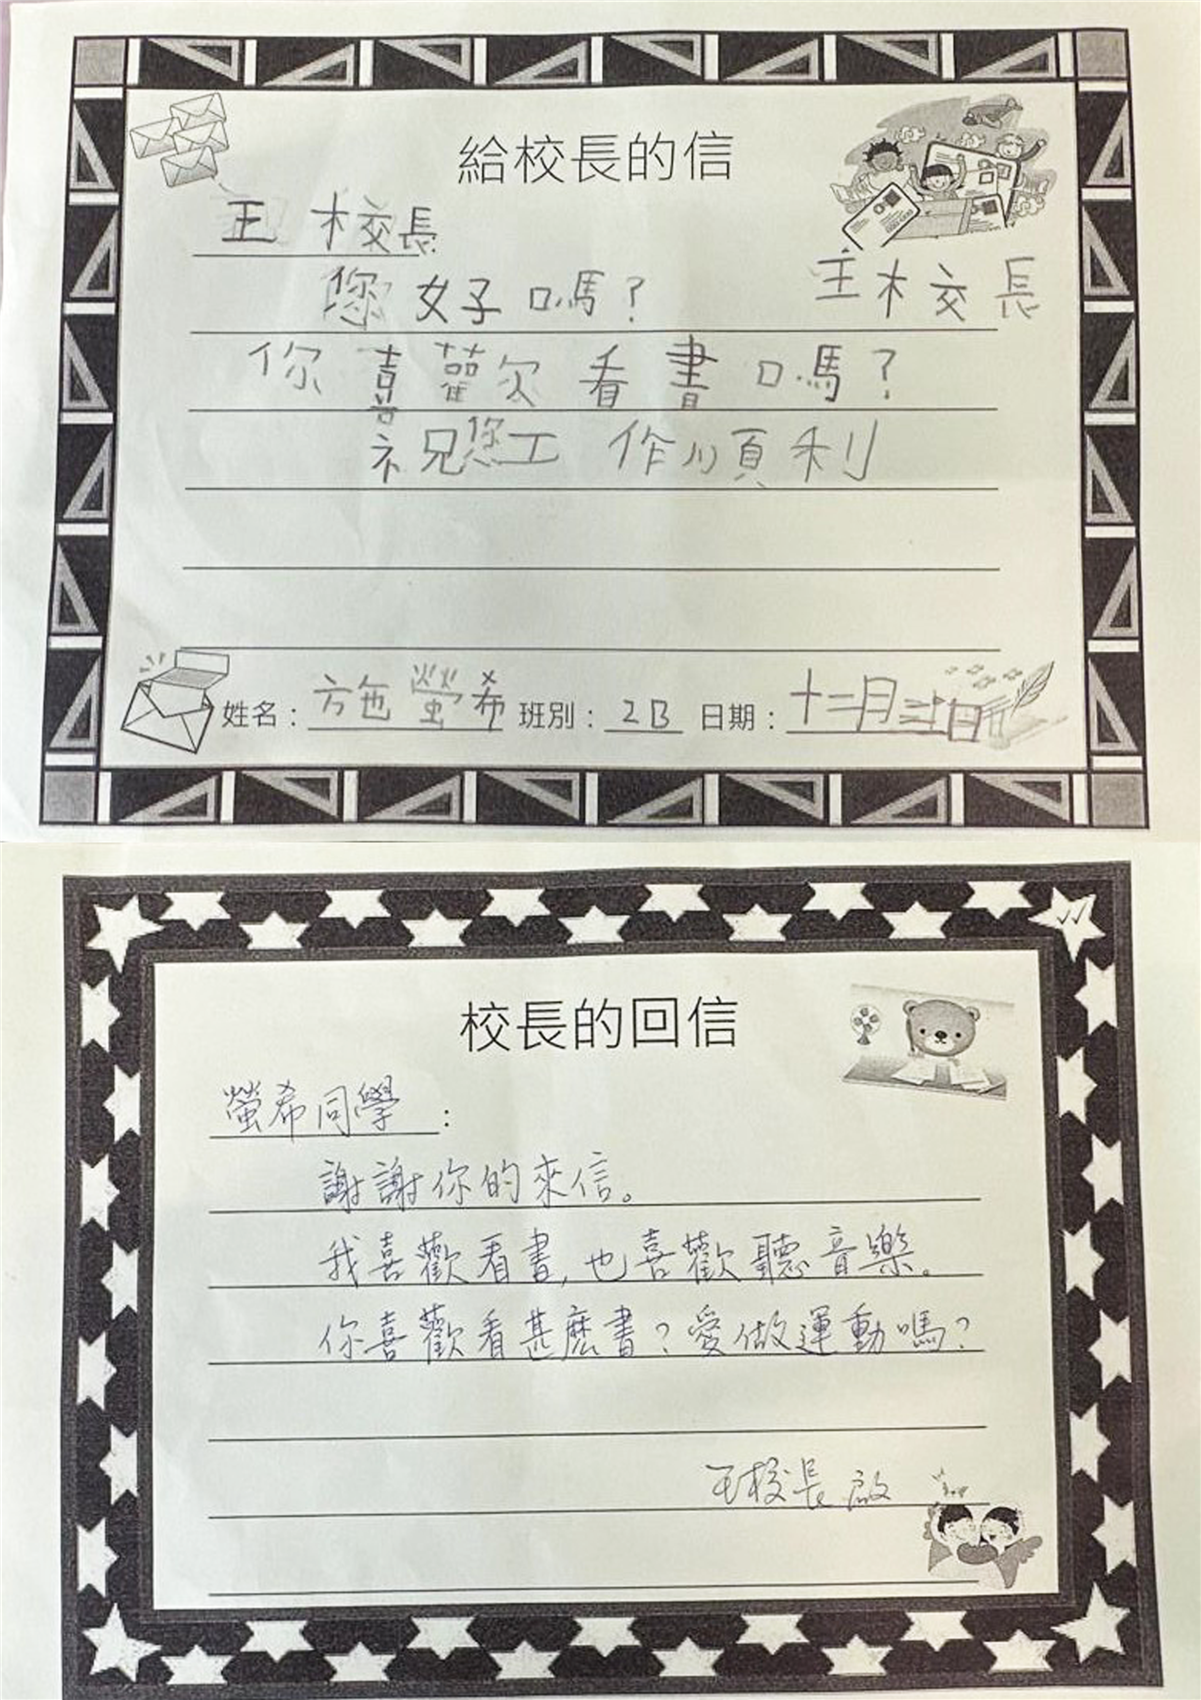 給校長的信
王校長
您好嗎？
王校長
你喜歡看書嗎？
祝您工作順利
姓名：施螢希 班別：2B 日期：十二月三日
校長的回信
螢希同學：
謝謝你的來信。
我喜歡看書,也喜歡聽音樂。
你喜歡看甚麼書？愛做運動嗎？
王校長啟